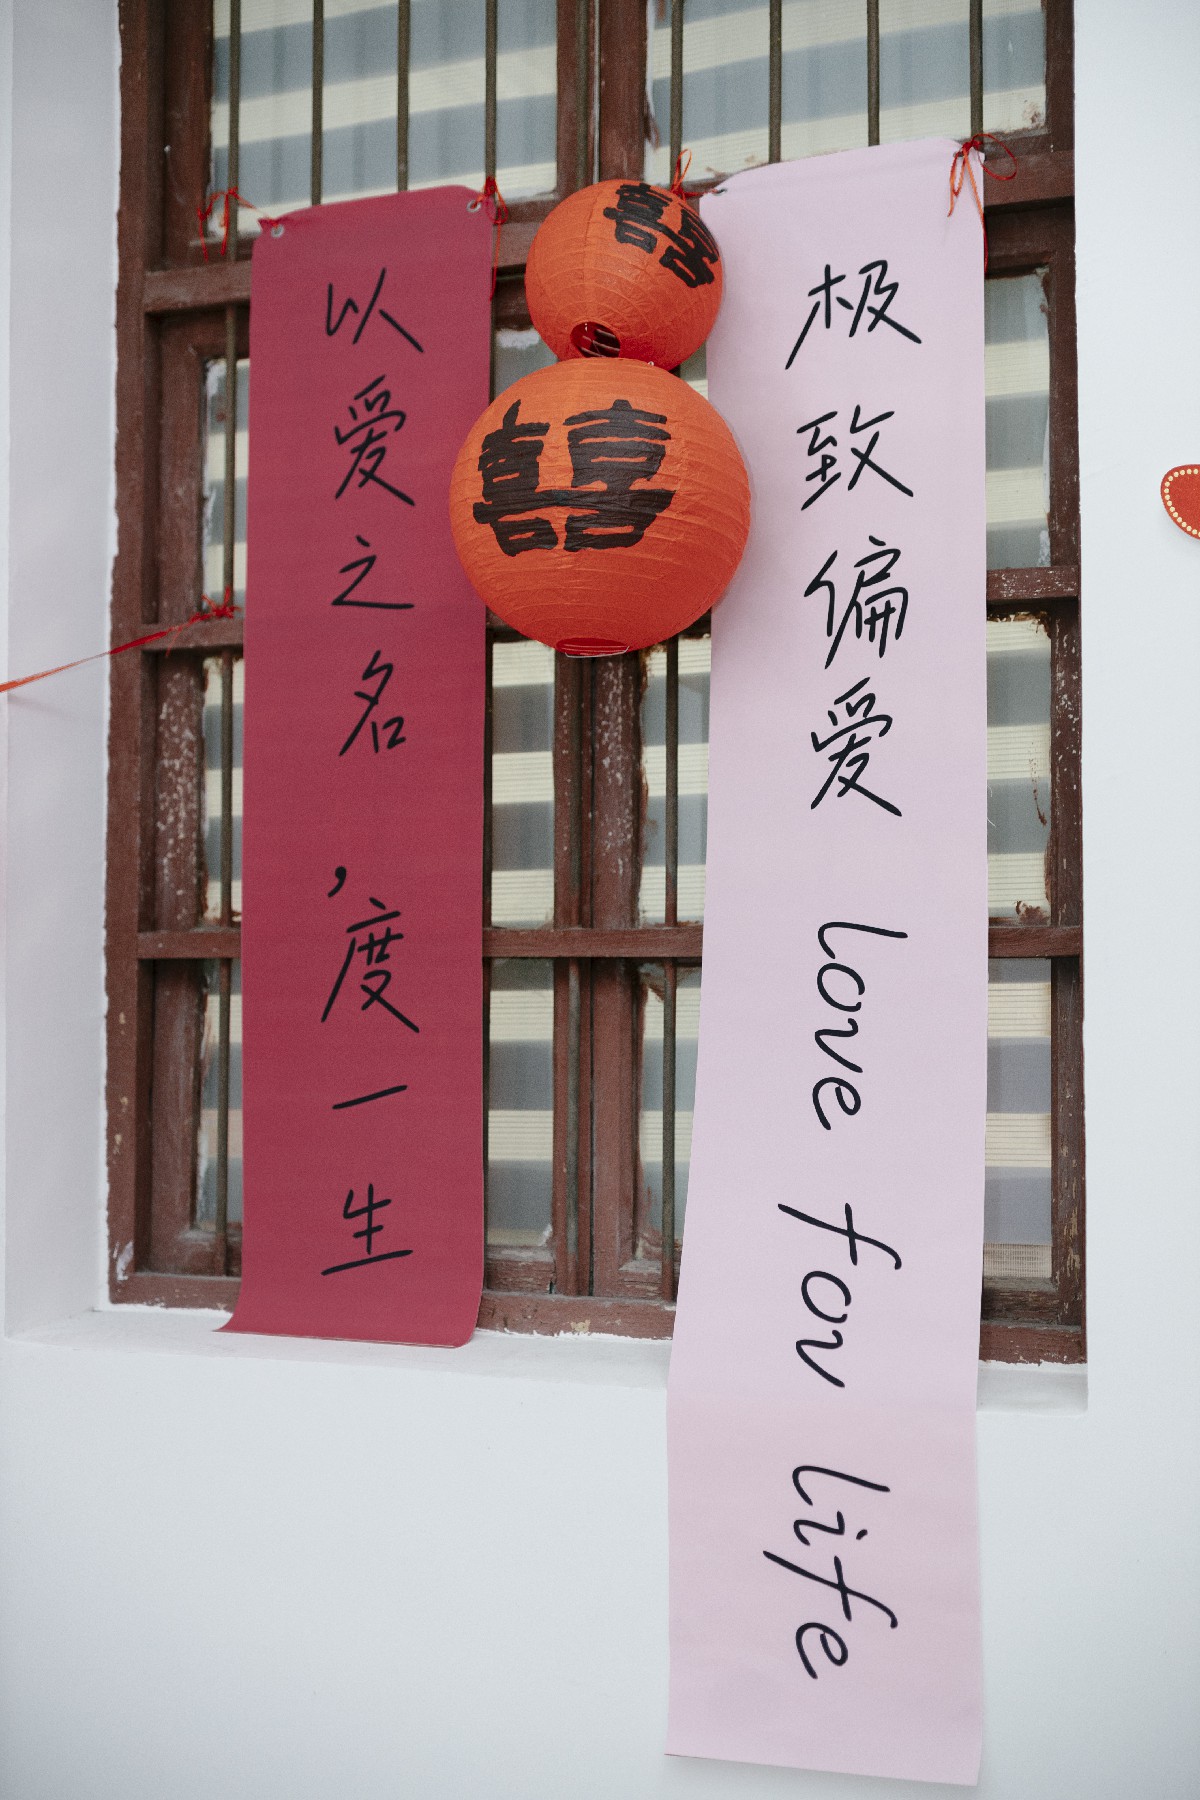 以爱之名，度一生
囍
囍
极致偏爱 Love for Life